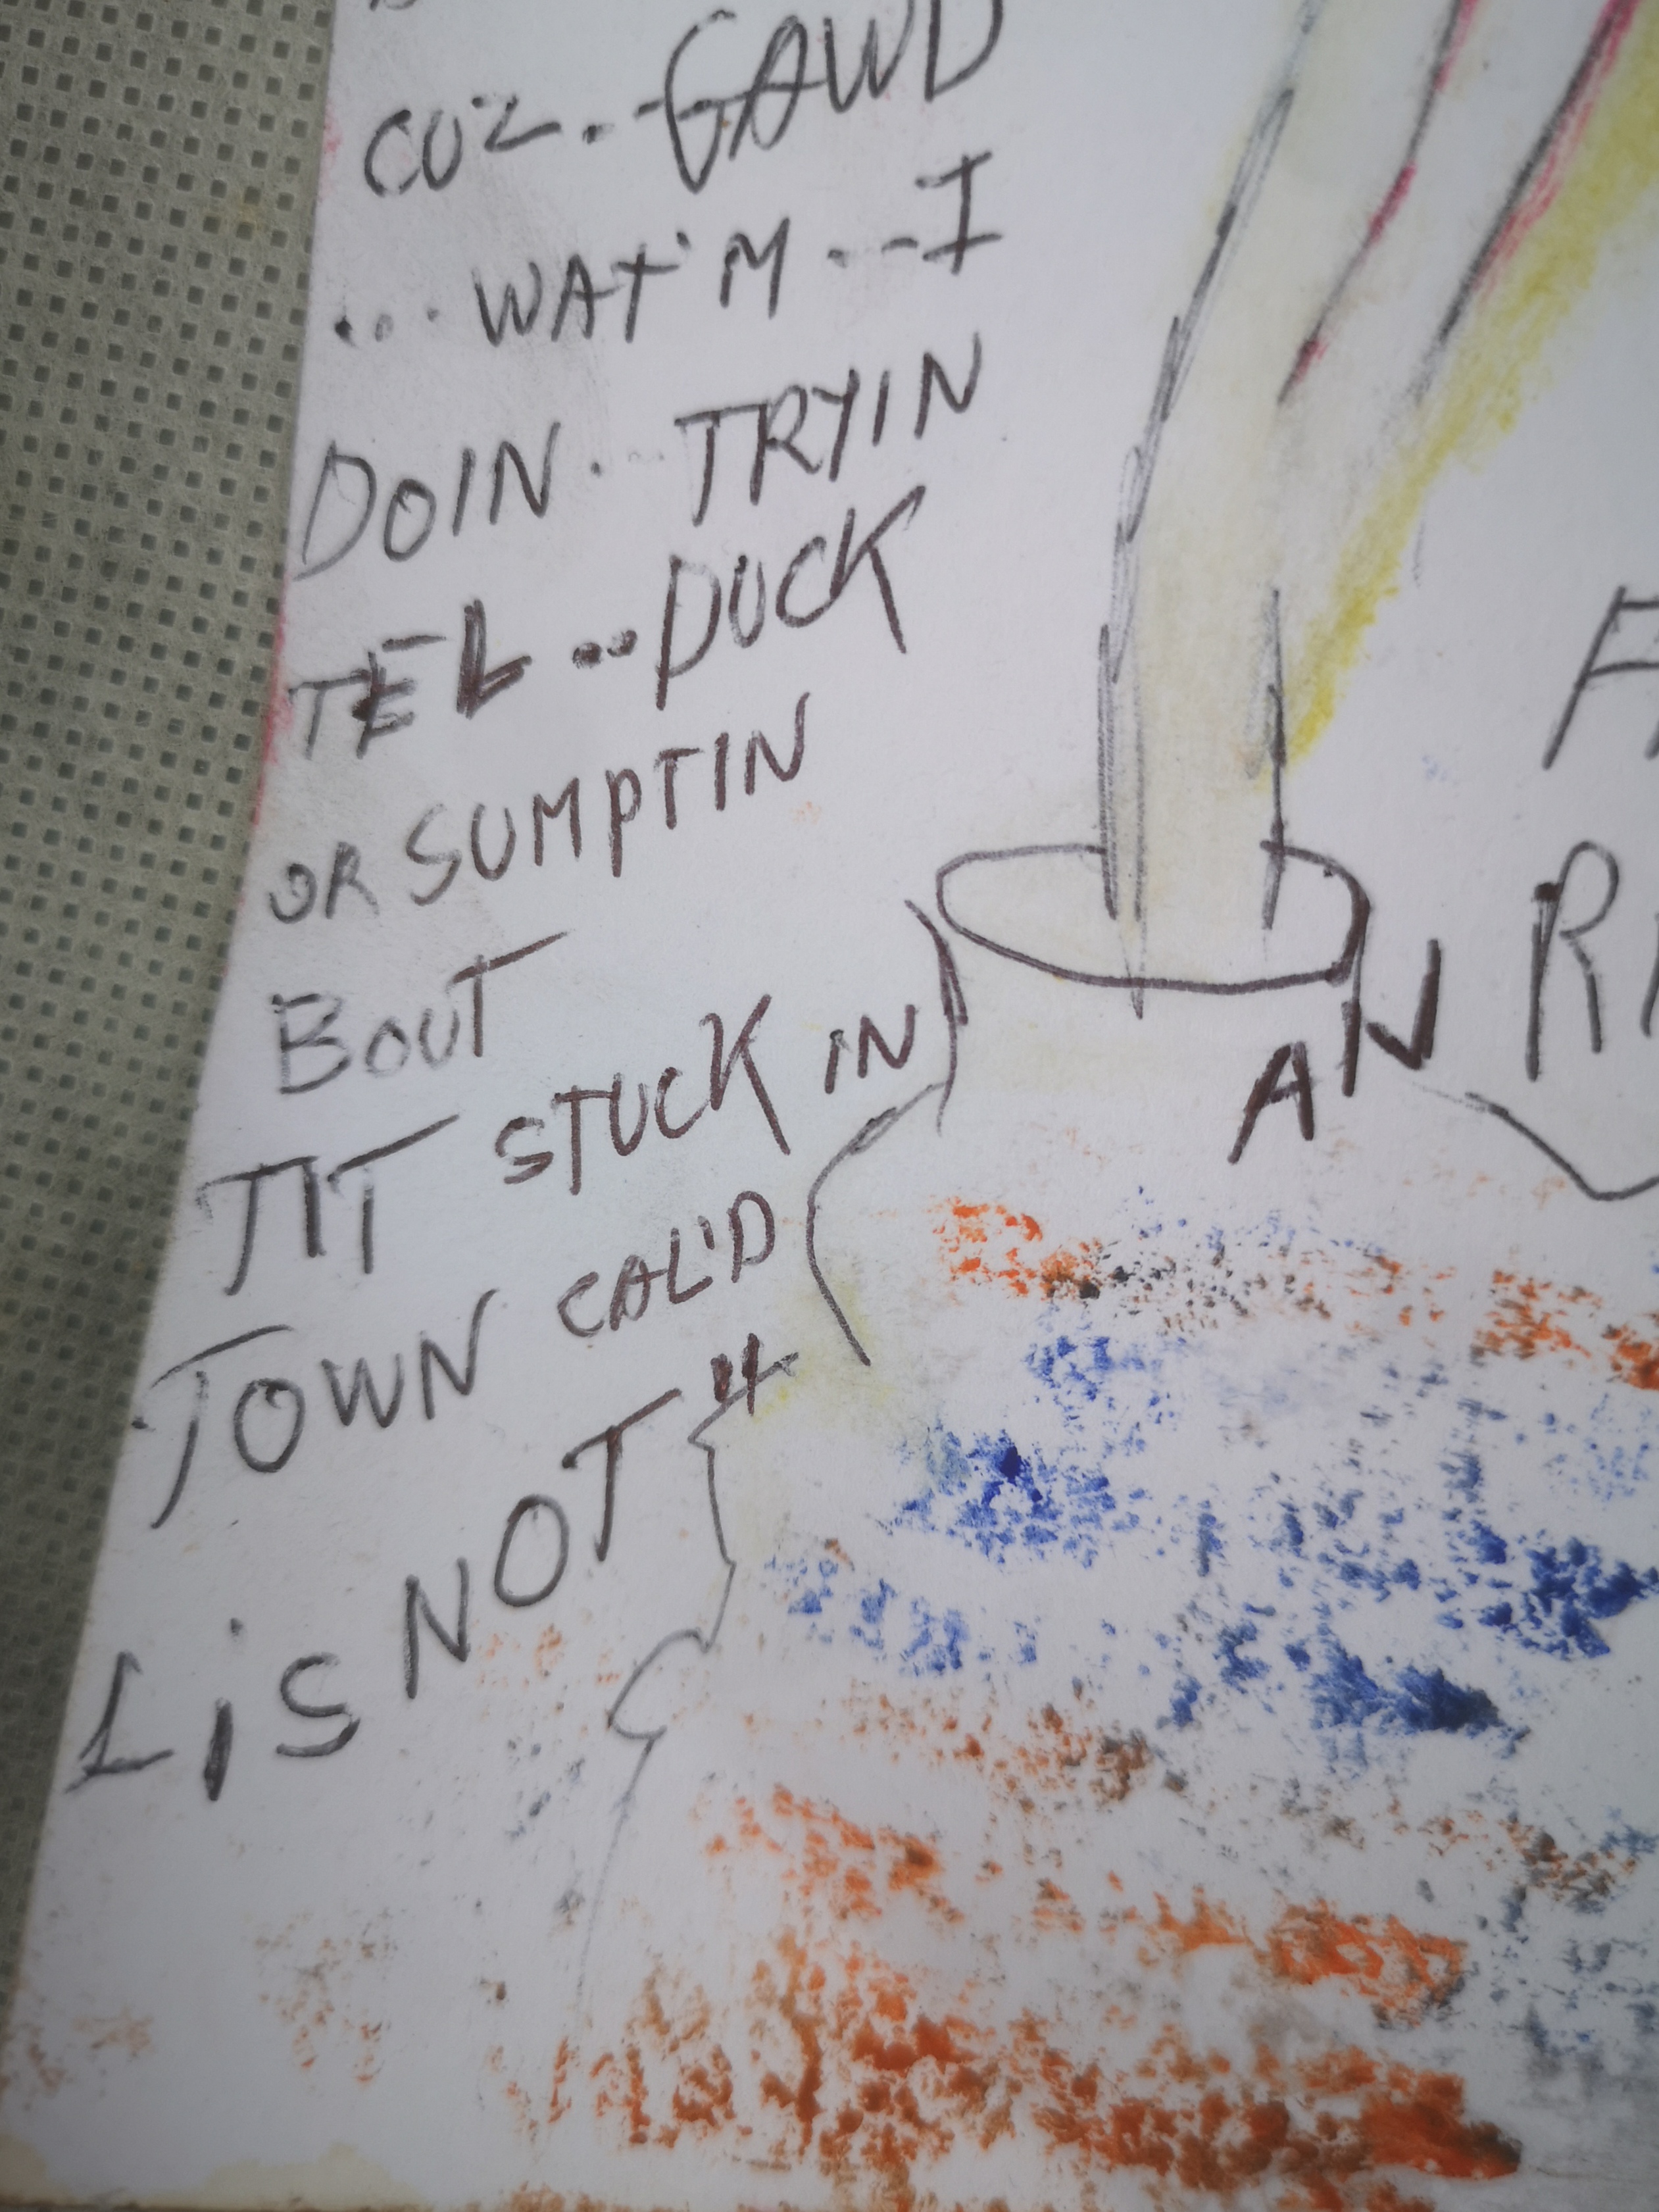 CUZ..GAWD
...WAT'M...I
DOIN...TRYIN
TEL..DUCK
OR SUMPTIN
BOUT
TIT STUCK IN
TOWN CAL'D
LiS NOT"
AN